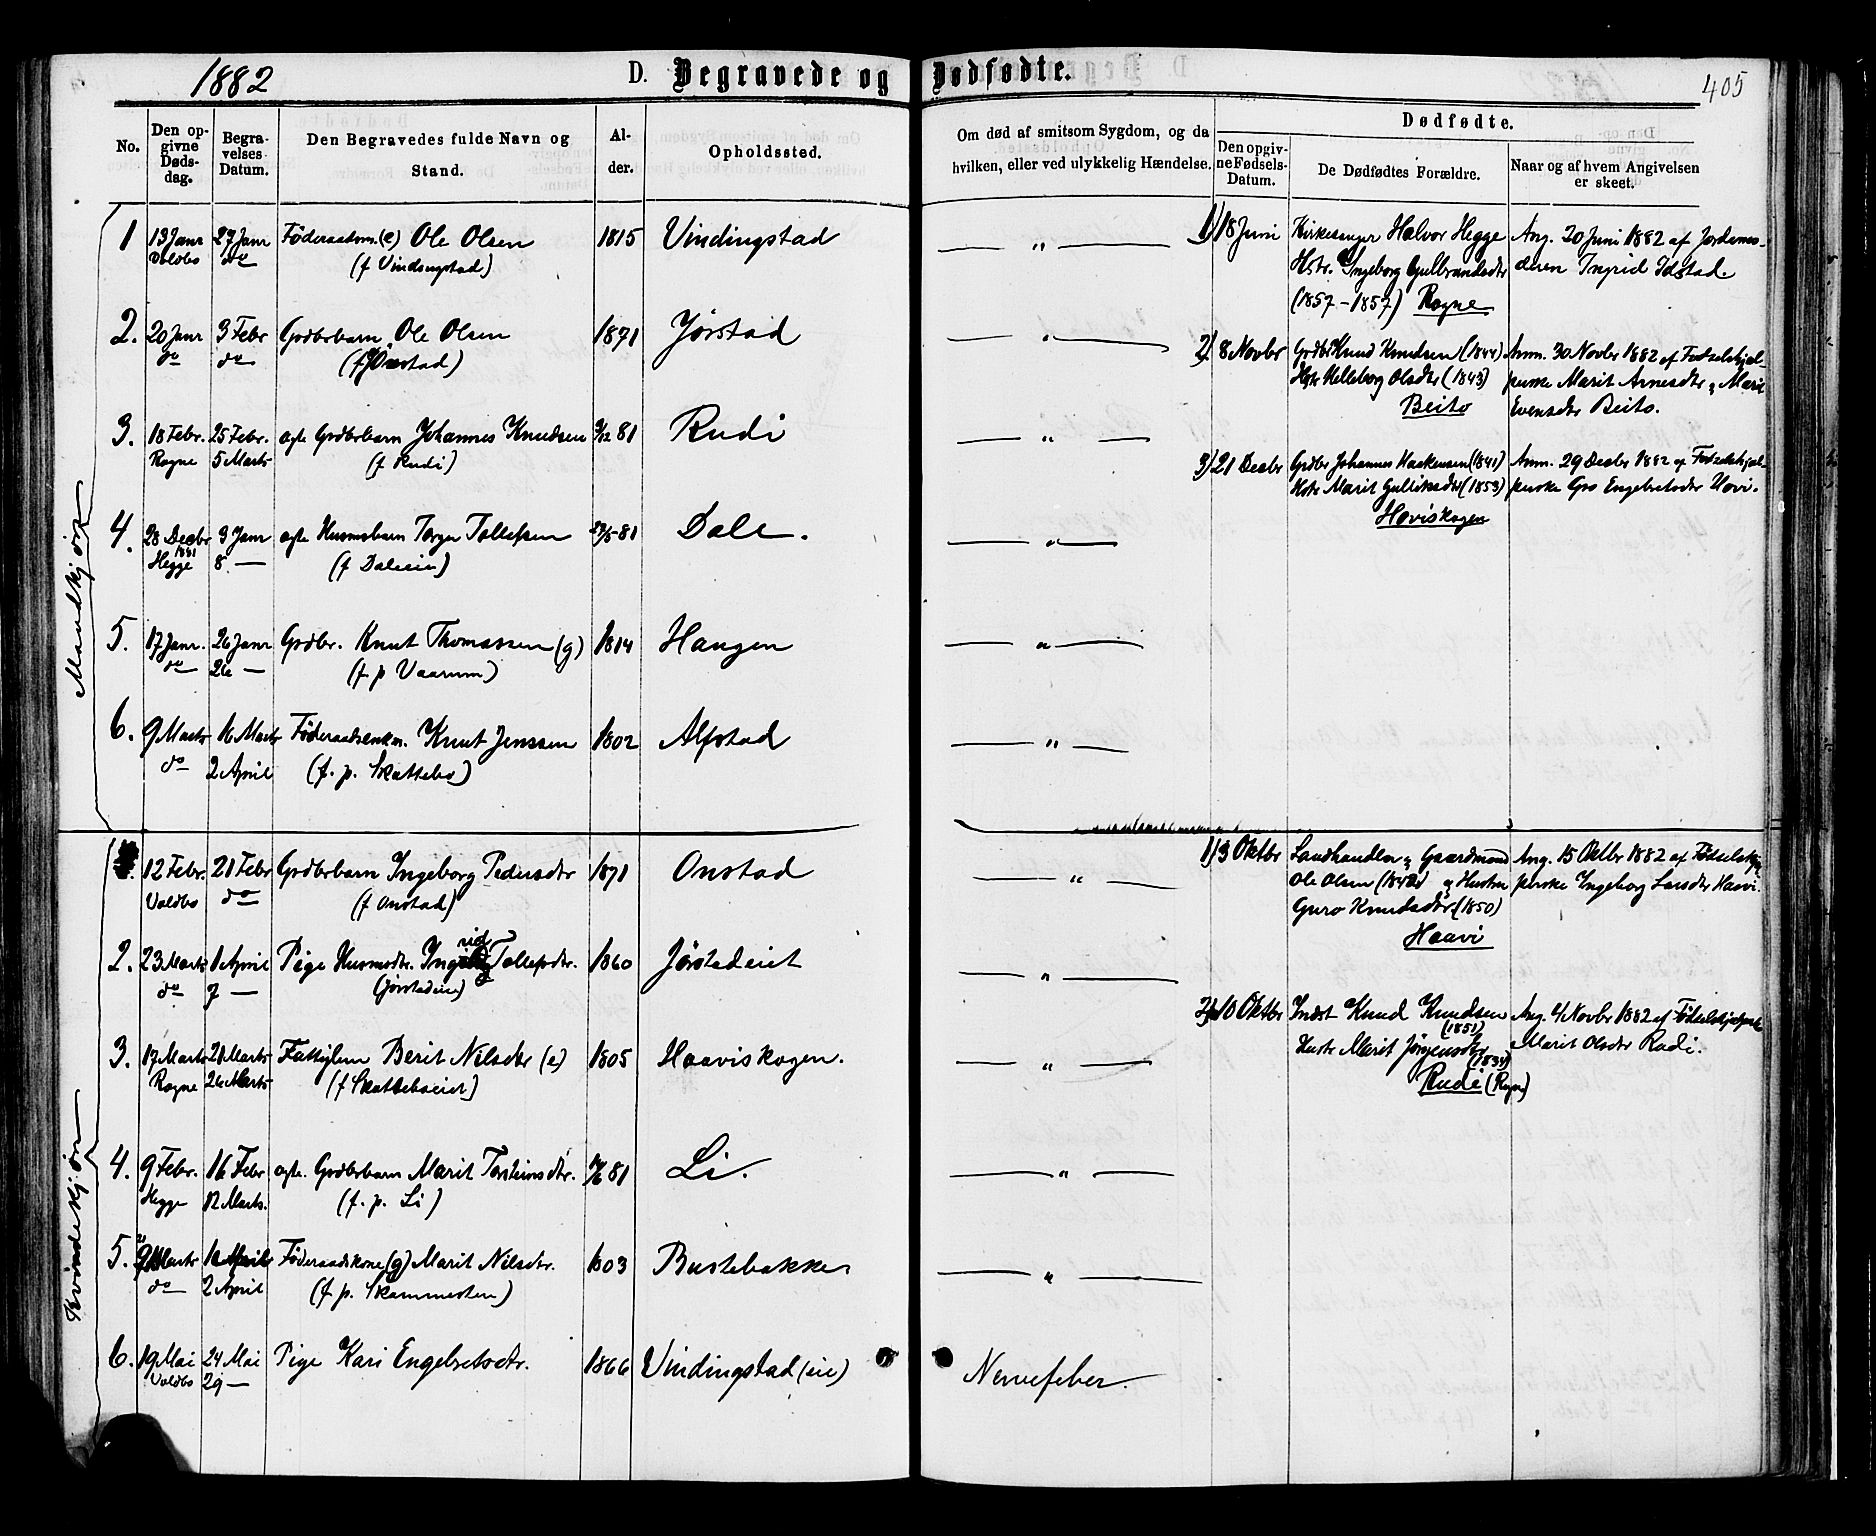 1882
D. Begravede og Dødfødte.
405
No.
Den opgivne Dødsdag.
Begravelses Datum.
Den Begravedes fulde Navn og Stand.
Alder.
Opholdssted.
Om død af smitsom Sygdom, og da hvilken, eller ved ulykkelig Hændelse.
Dødfødte.
Den opgivne Fødsels-Datum.
De Dødfødtes Forældre.
Naar og af hvem Angivelsen er skeet.
Mandkjøn
1 13 Janr 27 Janr Føderaadsm. (e) Ole Olsen 1815 Vindingstad — " —
Voldbo do (f Vindingstad)
2. 20 Janr 3 Febr Grdbrbarn Ole Olsen 1871 Jørstad — " —
do do
3. 18 Febr. 25 Febr. ægte Grdbrbarn Johannes Knudsen 9/12 81 Rudi — " —
Rogne 5 Marts (f Rudi)
4. 28 Decbr 3 Janr ægte Husmbarn Tollefsen 81 Dale. — " —
1881
Hegge 8 —
5. 17 Janr. 26 Janr Grdbr. Knut Thomassen (g) 1814 Haugen — " —
do 26 — (f p Vaarum)
6. 9 Marts 16 Marts Knut Jenssen 1802 Alfstad — " —
do 2 April (f. p. Skattebo)
1) 18 Juni Kirkesanger Halvor Hegge Ang. 20 Juni 1882 af Jordemo-
Hstr. Ingeborg Gulbrandsdtr deren Ingrid Idstad.
(1857 - 1857) Rogne
2) 8 Novbr Grdbr Knud Knudsen (1844) Anm. 30 Novbr 1882 af Fødselshjæl-
Hstr Helleborg Olsdtr (1843) perske Marit Arnesdtr og Marit
Beito Evensdtr Beito.
3) 21 Decbr Grdbr Johannes Haakensen (1841) Anm. 29 Decbr 1882 af Fødselshjæl-
Hstr Marit Gulliksdtr (1853) perske Gro Engebretsdtr Hovi.
Haviskogen
Kvindekjøn
12 Febr. 21 Febr Grdbrbarn Ingeborg Pedersdtr 1871 Onstad — " —
Voldbo do (f Onstad)
2. 23 Marts 1 April Pige Husmdtr. Ingrid Tollefsdtr. 1860 Jørstadeiet — " —
do 7 — (Jørstadeie)
3. 17 Marts 21 Marts Fattiglem Berit Nilsdtr (e) 1805 Haaviskogen. — " —
Rogne 26 Marts (f Skatteboeiet)
4. 9 Febr. 16 Febr ægte. Grdbrbarn Marit Torsteinsdtr. 81 Li. — " —
Hegge 12 Marts. (f. p. Li)
5. Marts April Føderaadskone (g) Marit Nilsdtr. 1803 Bustebakke — " —
do 2 April (f. p. Skammesten)
6. 19 Mai 24 Mai Pige Kari Engebretsdtr. 1866 Vindingstad (eie) Nervefeber.
Voldbo 29 —
1) 3 Oktbr Landhandler og Gaardmand Ang. 15 Oktbr 1882 af Fødselshjæl-
Ole Olsen og Hustru perske Ingeborg Larsdtr Haavi.
Guro Knudsdtr (1850)
Haavi
2) 10 Oktbr Indst Knud Knudsen Ang. 4 Novbr 1882 af Fødselshjælperske
(1851)
Hustr Marit Jørgensdtr Marit Olsdtr Rudi.
Rudi (Rogne)